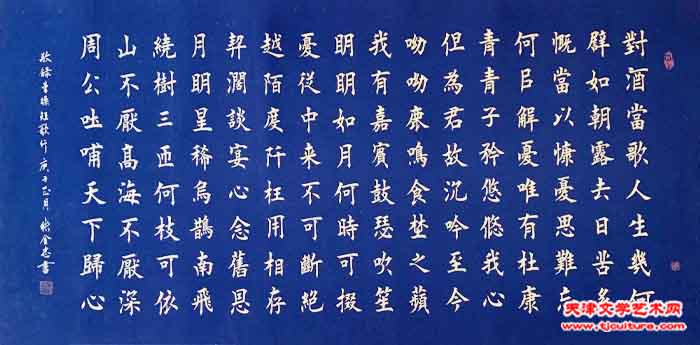 對酒當歌人生幾何
辟如朝露去日苦多
慨當以慷憂思難忘
何㠯解憂唯有杜康
青青子衿悠悠我心
但為君故沉吟至今
呦呦鹿鳴食埜之蘋
我有嘉賓鼓瑟吹笙
明明如月何時可掇
憂從中来不可斷絕
越陌度阡枉用相存
契闊談宴心念舊恩
月明星稀烏鵲南飛
繞樹三匝何枝可依
山不厭高海不厭深
周公吐哺天下歸心
敬錄曹操短歌行 庚子正月 金忠書
天津文学艺术网
www.tjculture.com